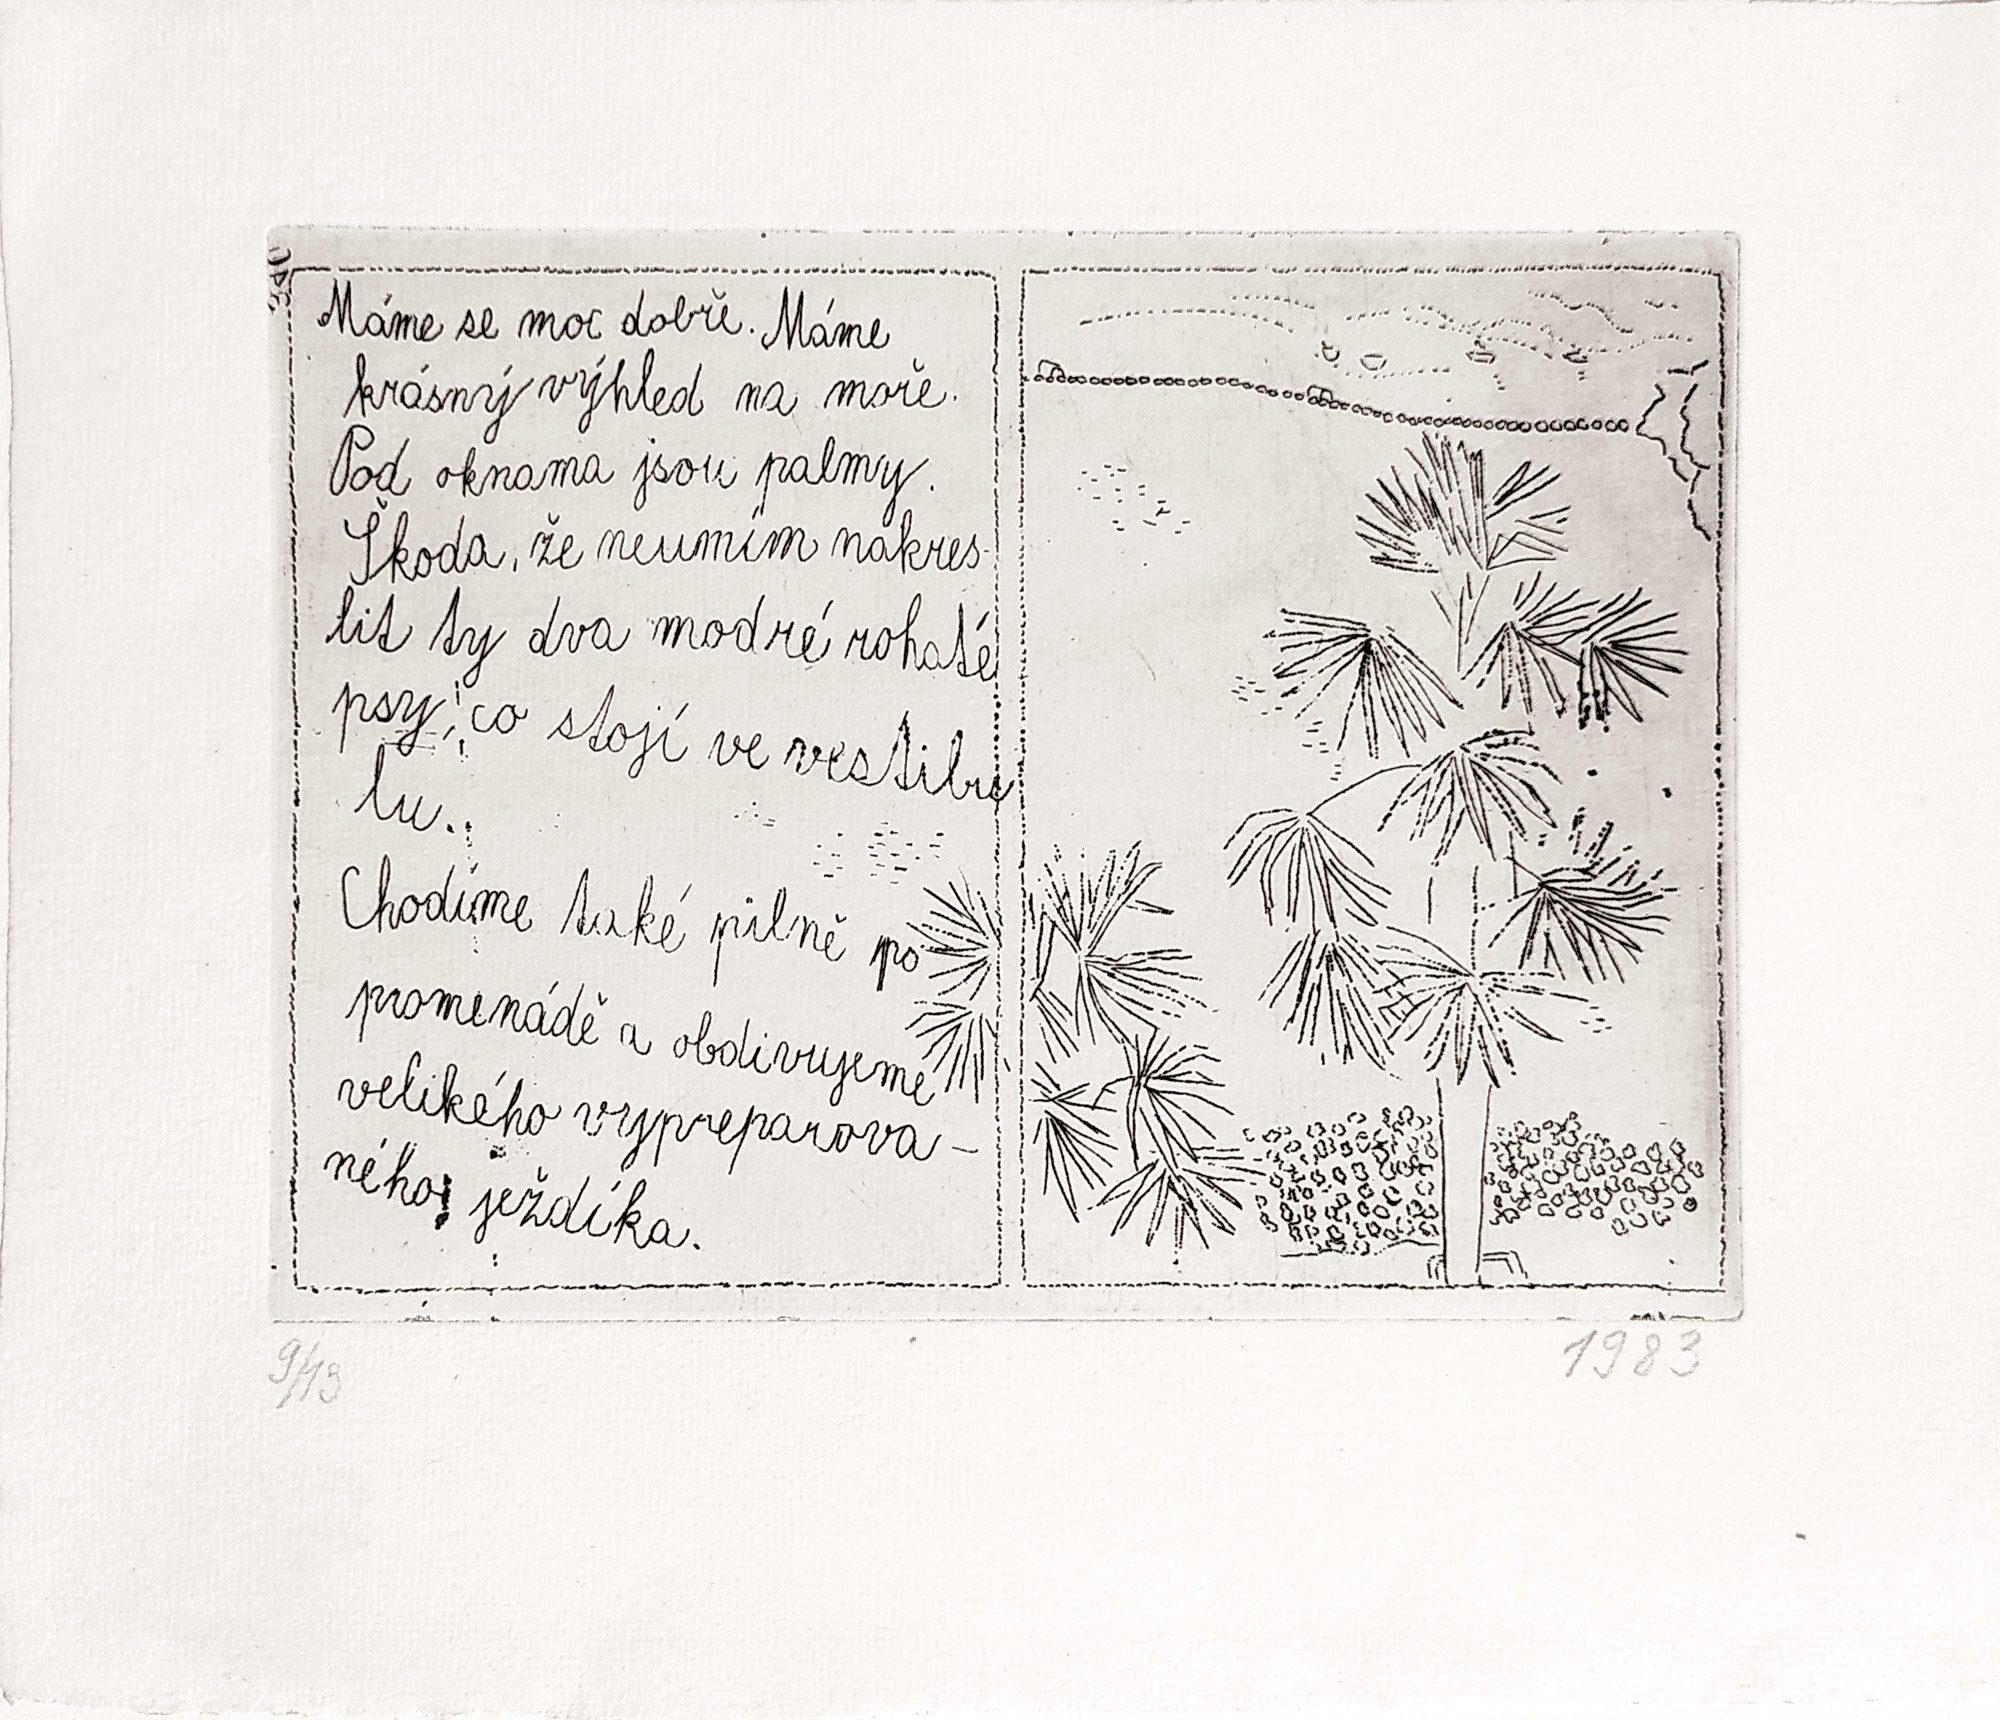 Máme se moc dobře. Máme
krásný výhled na moře.
Pod oknama jsou palmy.
Škoda, že neumím nakres-
lit ty dva modré rohaté
psy, co stojí ve vestibu
lu.
Chodíme také pilně po
promenádě a obdivujeme
velikého vypreparova-
ného ježdíka.
9/13
1983